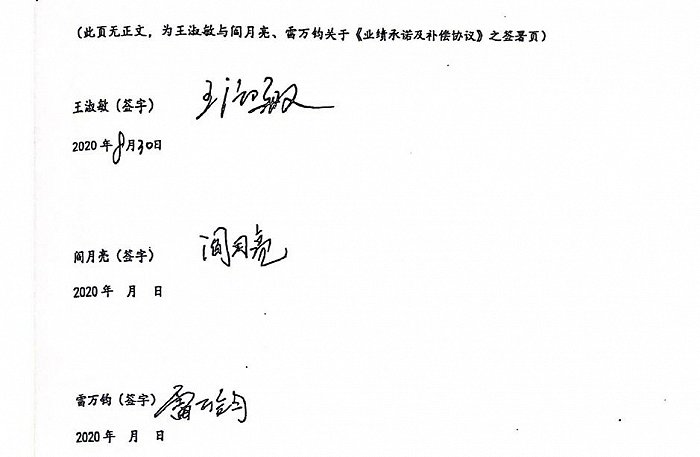 (此页无正文，为王淑敏与闾月亮、雷万钧关于《业绩承诺及补偿协议》之签署页)
王淑敏（签字） 王淑敏
2020年8月30日
闾月亮（签字） 闾月亮
2020年 月 日
雷万钧（签字） 雷万钧
2020年 月 日